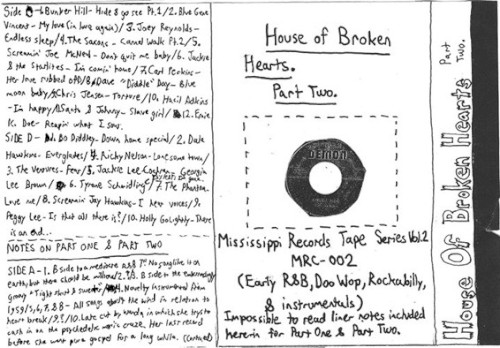 Side C - 1. Bunker Hill - Hide & go see Pt.1 / 2. Blue Gene
Vincent - My love (in love again) / 3. Joey Reynolds -
Endless sleep / 4. The Saxons - Camel Walk Pt.2 / 5.
Screamin' Joe McNeil - Don't quit me baby / 6. Jackie
& the Starlites - I'm comin' home / 7. Carl Perkins -
Her love rubbed off / 8. Dave "Diddle" Day - Blue
moon baby / 9. Chris Jensen - Torture / 10. Hasil Adkins
- I'm happy / 11. Santo & Johnny - Slave girl / 12. Ernie
K. Doe - Reapin' what I sow.
SIDE D - 1. Bo Diddley - Down home special / 2. Dale
Hawkins - Everglades / 4. Ricky Nelson - Lonesome town /
3. The Versatones - / 5. Jackie Lee Cochran - Georgia
Lee Brown / 6. Tyrone Schmidling - / 7. The Phantom -
Love me / 8. Screamin' Jay Hawkins - I hear voices / 9.
Peggy Lee - Is that all there is? / 10. Holly Golightly - There
is an end...
NOTES ON PART ONE & PART TWO
SIDE A - 1. B side to a mediocre
earth, but there should be millions / 2.
group "
1959 / 5, 6, 7, & 8 - All songs about the wind in relation to
heart break / 9. / 10. Late cut by Wanda, in which she trys to
cash in on the psychedelic music craze. Her last record
before she went pure gospel for a long while. (Contined)
House of Broken
Hearts.
Part Two.
DEMON
Mississippi Records Tape Series Vol. 2
MRC-002
(Early R&B, Doo Wop, Rockabilly,
& instrumentals)
Impossible to read liner notes included
herein for Part One & Part Two.
House Of Broken Hearts
Part
Two.